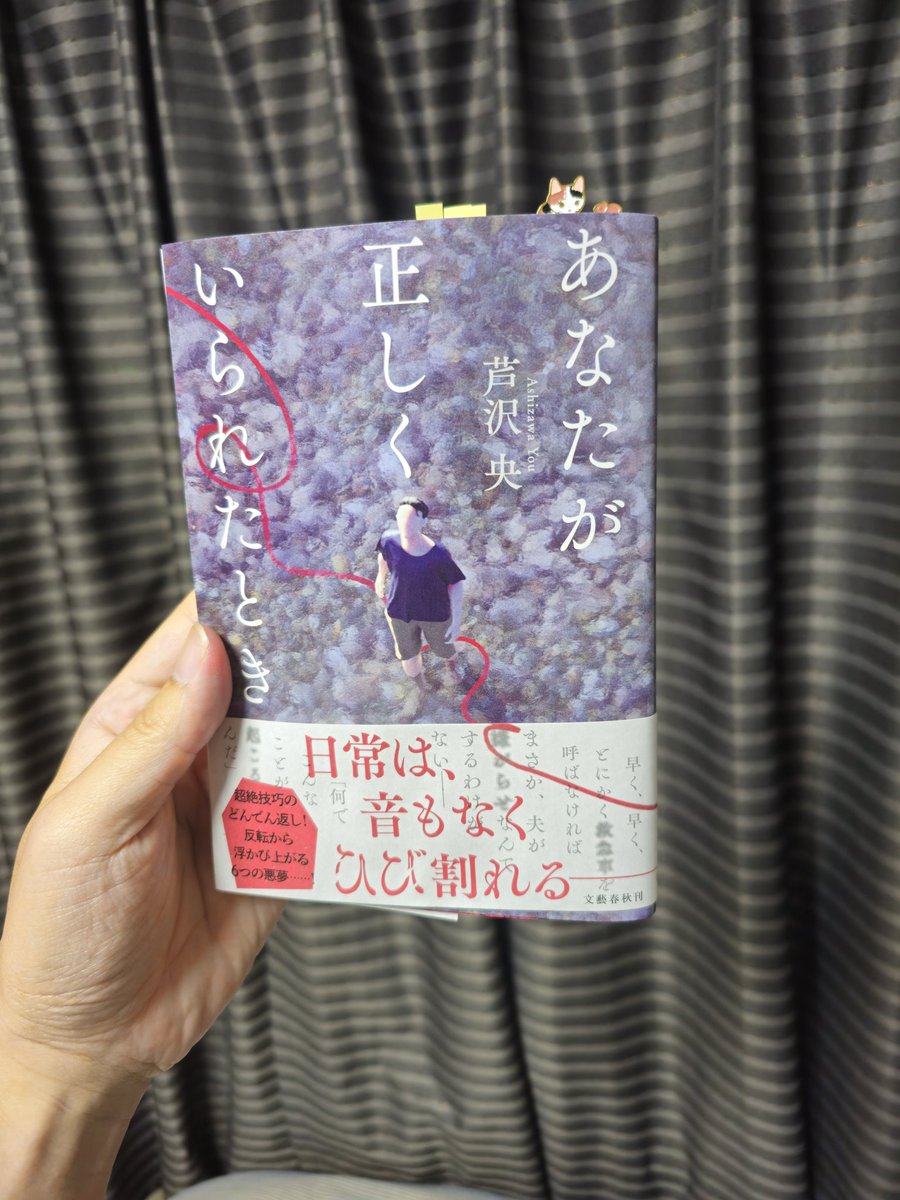 あなたが
正しく
いられたとき
芦沢 央
Ashizawa You
早く、早く、
とにかく救急車を
呼ばなければ
まさか、夫が
するわけが
ない――
「何で
こんな
ことが
起ころ
んだ」
日常は、
音もなく
ひび割れる
超絶技巧の
どんでん返し!
反転から
浮かび上がる
6つの悪夢……!
文藝春秋刊